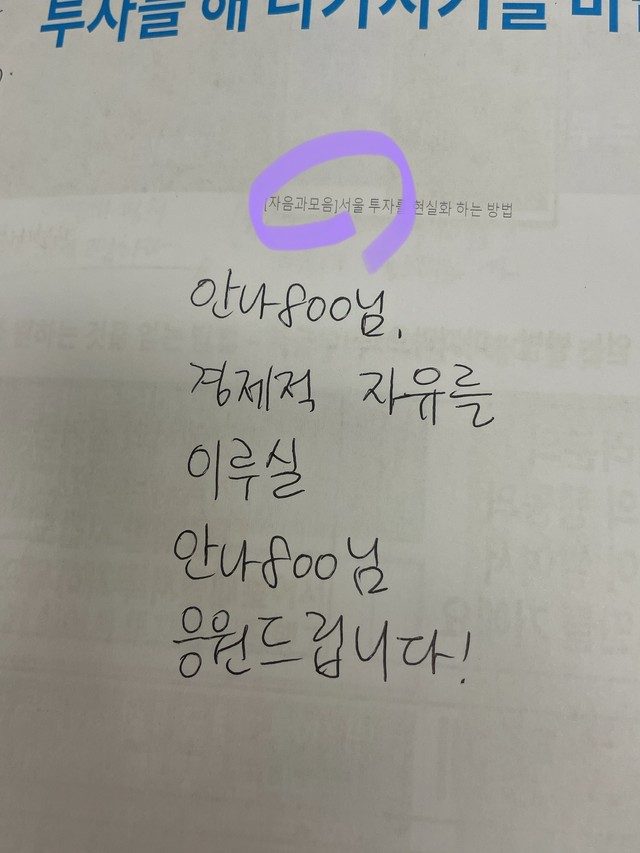 투자를 해 나가시기를 바
[자음과모음]서울 투자를 현실화 하는 방법
안나800님,
경제적 자유를
이루실
안나800님
응원드립니다!